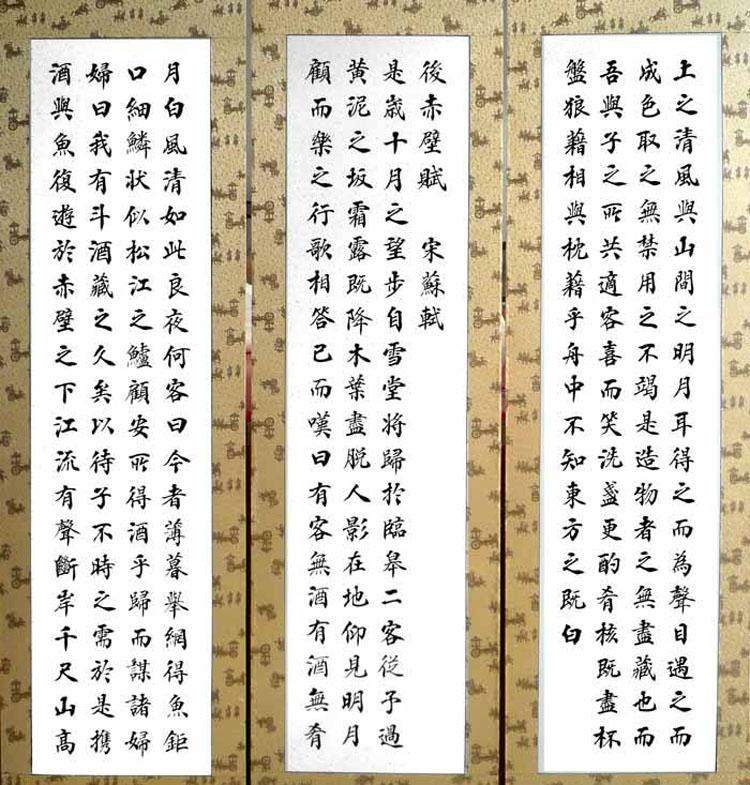 上之清風與山間之明月耳得之而為聲目遇之而
成色取之無禁用之不竭是造物者之無盡藏也而
吾與子之所共適客喜而笑洗盞更酌肴核既盡杯
盤狼藉相與枕藉乎舟中不知東方之既白
後赤壁賦 宋蘇軾
是歳十月之望步自雪堂將歸於臨皋二客從予過
黃泥之坂霜露既降木葉盡脫人影在地仰見明月
顧而樂之行歌相答已而嘆曰有客無酒有酒無肴
月白風清如此良夜何客曰今者薄暮舉網得魚鉅
口細鱗狀似松江之鱸顧安所得酒乎歸而謀諸婦
婦曰我有斗酒藏之久矣以待子不時之需於是携
酒與魚復遊於赤壁之下江流有聲斷岸千尺山高